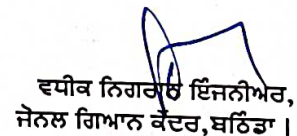 ਵਧੀਕ ਨਿਗਰਾਨ ਇੰਜਨੀਅਰ,
ਜੋਨਲ ਗਿਆਨ ਕੇਂਦਰ,ਬਠਿੰਡਾ।